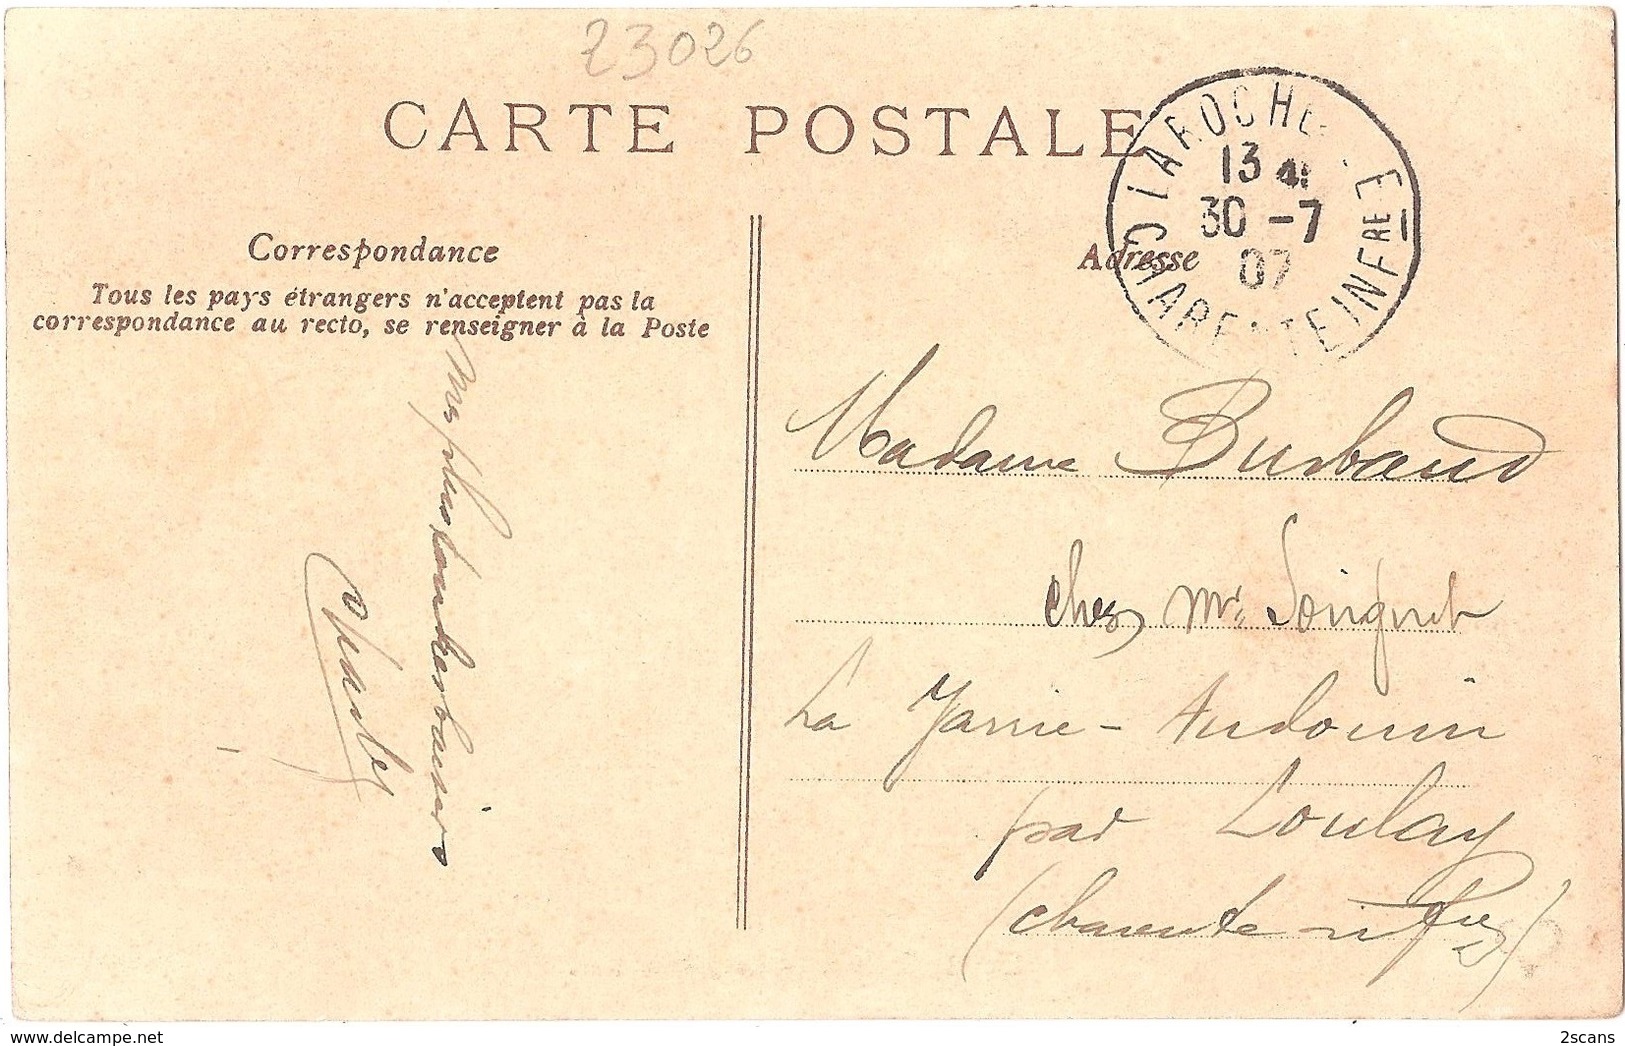 23026
CARTE POSTALE
LA ROCHELLE
13 41
30 -7
07
CHARENTE INFRE
Correspondance
Tous les pays étrangers n'acceptent pas la
correspondance au recto, se renseigner à la Poste
Adresse
Mes plus tendres baisers
Charles
Madame Burbaud
chez Mr Soignet
La Jarrie-Audouin
par Loulay
(Charente-infre)
2scans